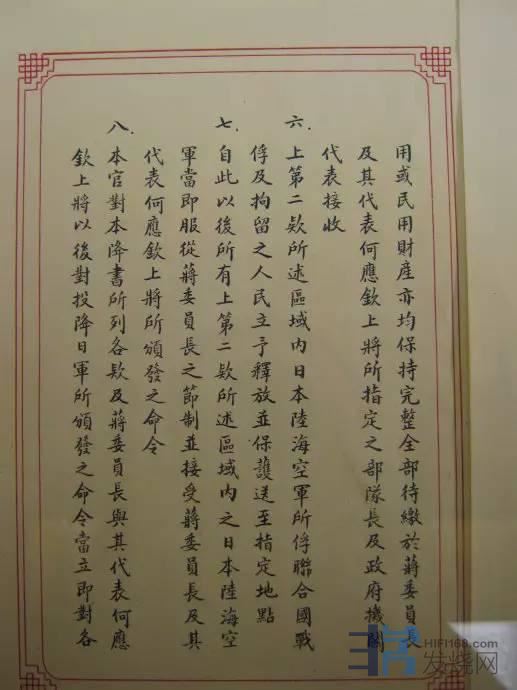 用或民用財產亦均保持完整全部待繳於蔣委員長
及其代表何應欽上將所指定之部隊長及政府機關
代表接收
六.上第二款所述區域內日本陸海空軍所俘聯合國戰
俘及拘留之人民立予釋放並保護送至指定地點
七.自此以後所有上第二款所述區域內之日本陸海空
軍當即服從蔣委員長之節制並接受蔣委員長及其
代表何應欽上將所頒發之命令
八.本官對本降書所列各款及蔣委員長與其代表何應
欽上將以後對投降日軍所頒發之命令當立即對各
HIFI168.com
发烧网